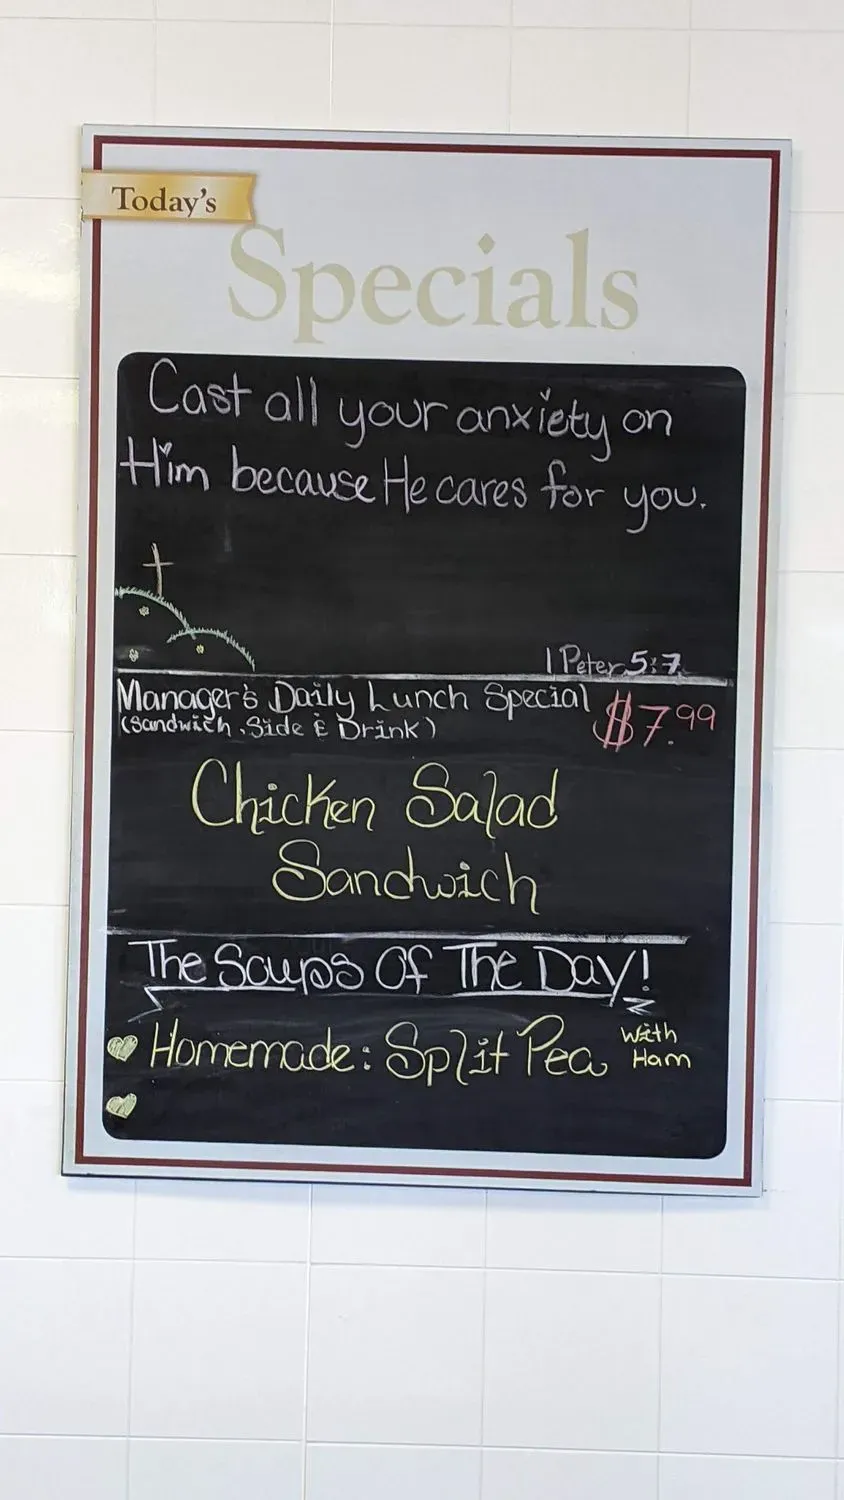 Today's
Specials
Cast all your anxiety on
Him because He cares for you.
1 Peter 5:7
Manager's Daily Lunch Special $7.99
(Sandwich, Side & Drink)
Chicken Salad
Sandwich
The Soups Of The Day!
Homemade: Split Pea With
Ham